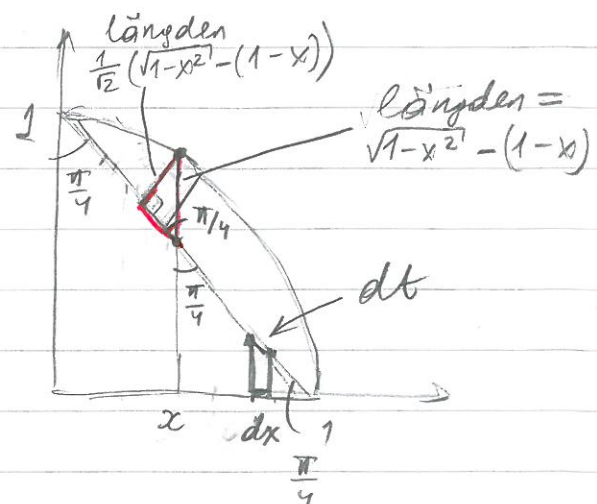 längden
1/√2 (√1-x² - (1-x))
längden =
√1-x² - (1-x)
1
π/4
π/4
π/4
dt
x
dx
1
π/4